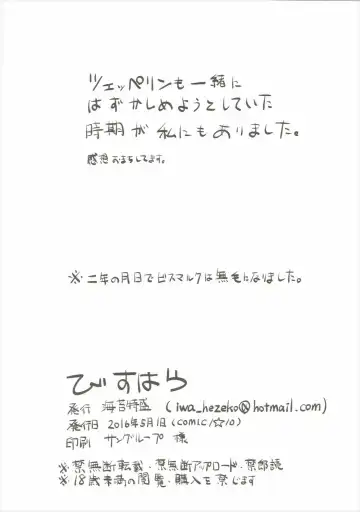 ツェッペリンも一緒に
はずかしめようとしていた
時期が私にもありました。
感想おまちしてます。
※二年の月日でビスマルクは無毛になりました。
びすはら
発行 海苔特盛 (iwa_hezeko@hotmail.com)
発行日 2016年5月1日(comic1☆10)
印刷 サングループ 様
※禁無断転載・禁無断アップロード・禁部読
※18歳未満の閲覧・購入を禁じます